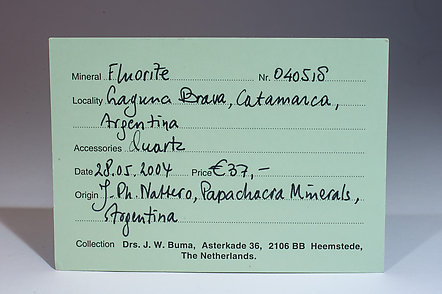 Mineral Fluorite Nr. 040518
Locality Laguna Brava, Catamarca,
Argentina
Accessories Quartz
Date 28.05.2004 Price €37,-
Origin J. Ph. Nattero, Papachacra Minerals,
Argentina
Collection Drs. J. W. Buma, Asterkade 36, 2106 BB Heemstede,
The Netherlands.